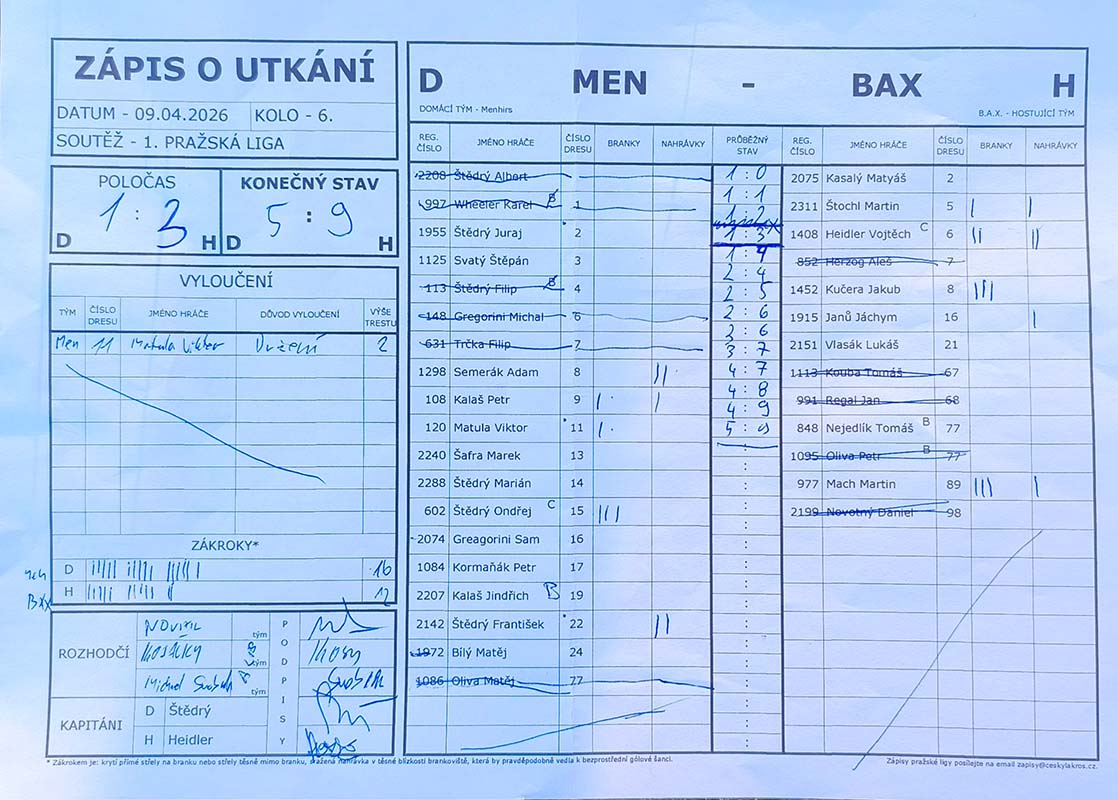 ZÁPIS O UTKÁNÍ
DATUM - 09.04.2026 KOLO - 6.
SOUTĚŽ - 1. PRAŽSKÁ LIGA
POLOČAS KONEČNÝ STAV
1 : 3 5 : 9
D H D H
VYLOUČENÍ
TÝM ČÍSLO DRESU JMÉNO HRÁČE DŮVOD VYLOUČENÍ VÝŠE TRESTU
Men 11 Matula Viktor Držení 2
ZÁKROKY*
D 16
H 12
ROZHODČÍ
tým
tým
tým
PODPISY
KAPITÁNI
D Štědrý
H Heidler
D MEN - BAX H
DOMÁCÍ TÝM - Menhirs B.A.X. - HOSTUJÍCÍ TÝM
REG. ČÍSLO JMÉNO HRÁČE ČÍSLO DRESU BRANKY NAHRÁVKY PRŮBĚŽNÝ STAV REG. ČÍSLO JMÉNO HRÁČE ČÍSLO DRESU BRANKY NAHRÁVKY
2208 Štědrý Albert
997 Wheeler Karel B 1
1955 Štědrý Juraj 2
1125 Svatý Štěpán 3
113 Štědrý Filip B 4
148 Gregorini Michal 6
631 Trčka Filip 7
1298 Semerák Adam 8 ||
108 Kalaš Petr 9 | |
120 Matula Viktor 11 |
2240 Šafra Marek 13
2288 Štědrý Marián 14
602 Štědrý Ondřej C 15 |||
2074 Greagorini Sam 16
1084 Kormaňák Petr 17
2207 Kalaš Jindřich B 19
2142 Štědrý František 22 ||
1972 Bílý Matěj 24
1086 Oliva Matěj 77
1 : 0
1 : 1
1 : 2
1 : 3
1 : 4
2 : 4
2 : 5
2 : 6
2 : 6
3 : 7
4 : 7
4 : 8
4 : 9
5 : 9
2075 Kasalý Matyáš 2
2311 Štochl Martin 5 | |
1408 Heidler Vojtěch C 6 || ||
852 Herzog Aleš 7
1452 Kučera Jakub 8 |||
1915 Janů Jáchym 16 |
2151 Vlasák Lukáš 21
1113 Kouba Tomáš 67
991 Regal Jan 68
848 Nejedlík Tomáš B 77
1095 Oliva Petr B 77
977 Mach Martin 89 ||| |
2199 Novotný Daniel 98
* Zákrokem je: krytí přímé střely na branku nebo střely těsně mimo branku, sražená nahrávka v těsné blízkosti brankoviště, která by pravděpodobně vedla k bezprostřední gólové šanci.
Zápisy pražské ligy posílejte na email zapisy@ceskylakros.cz.